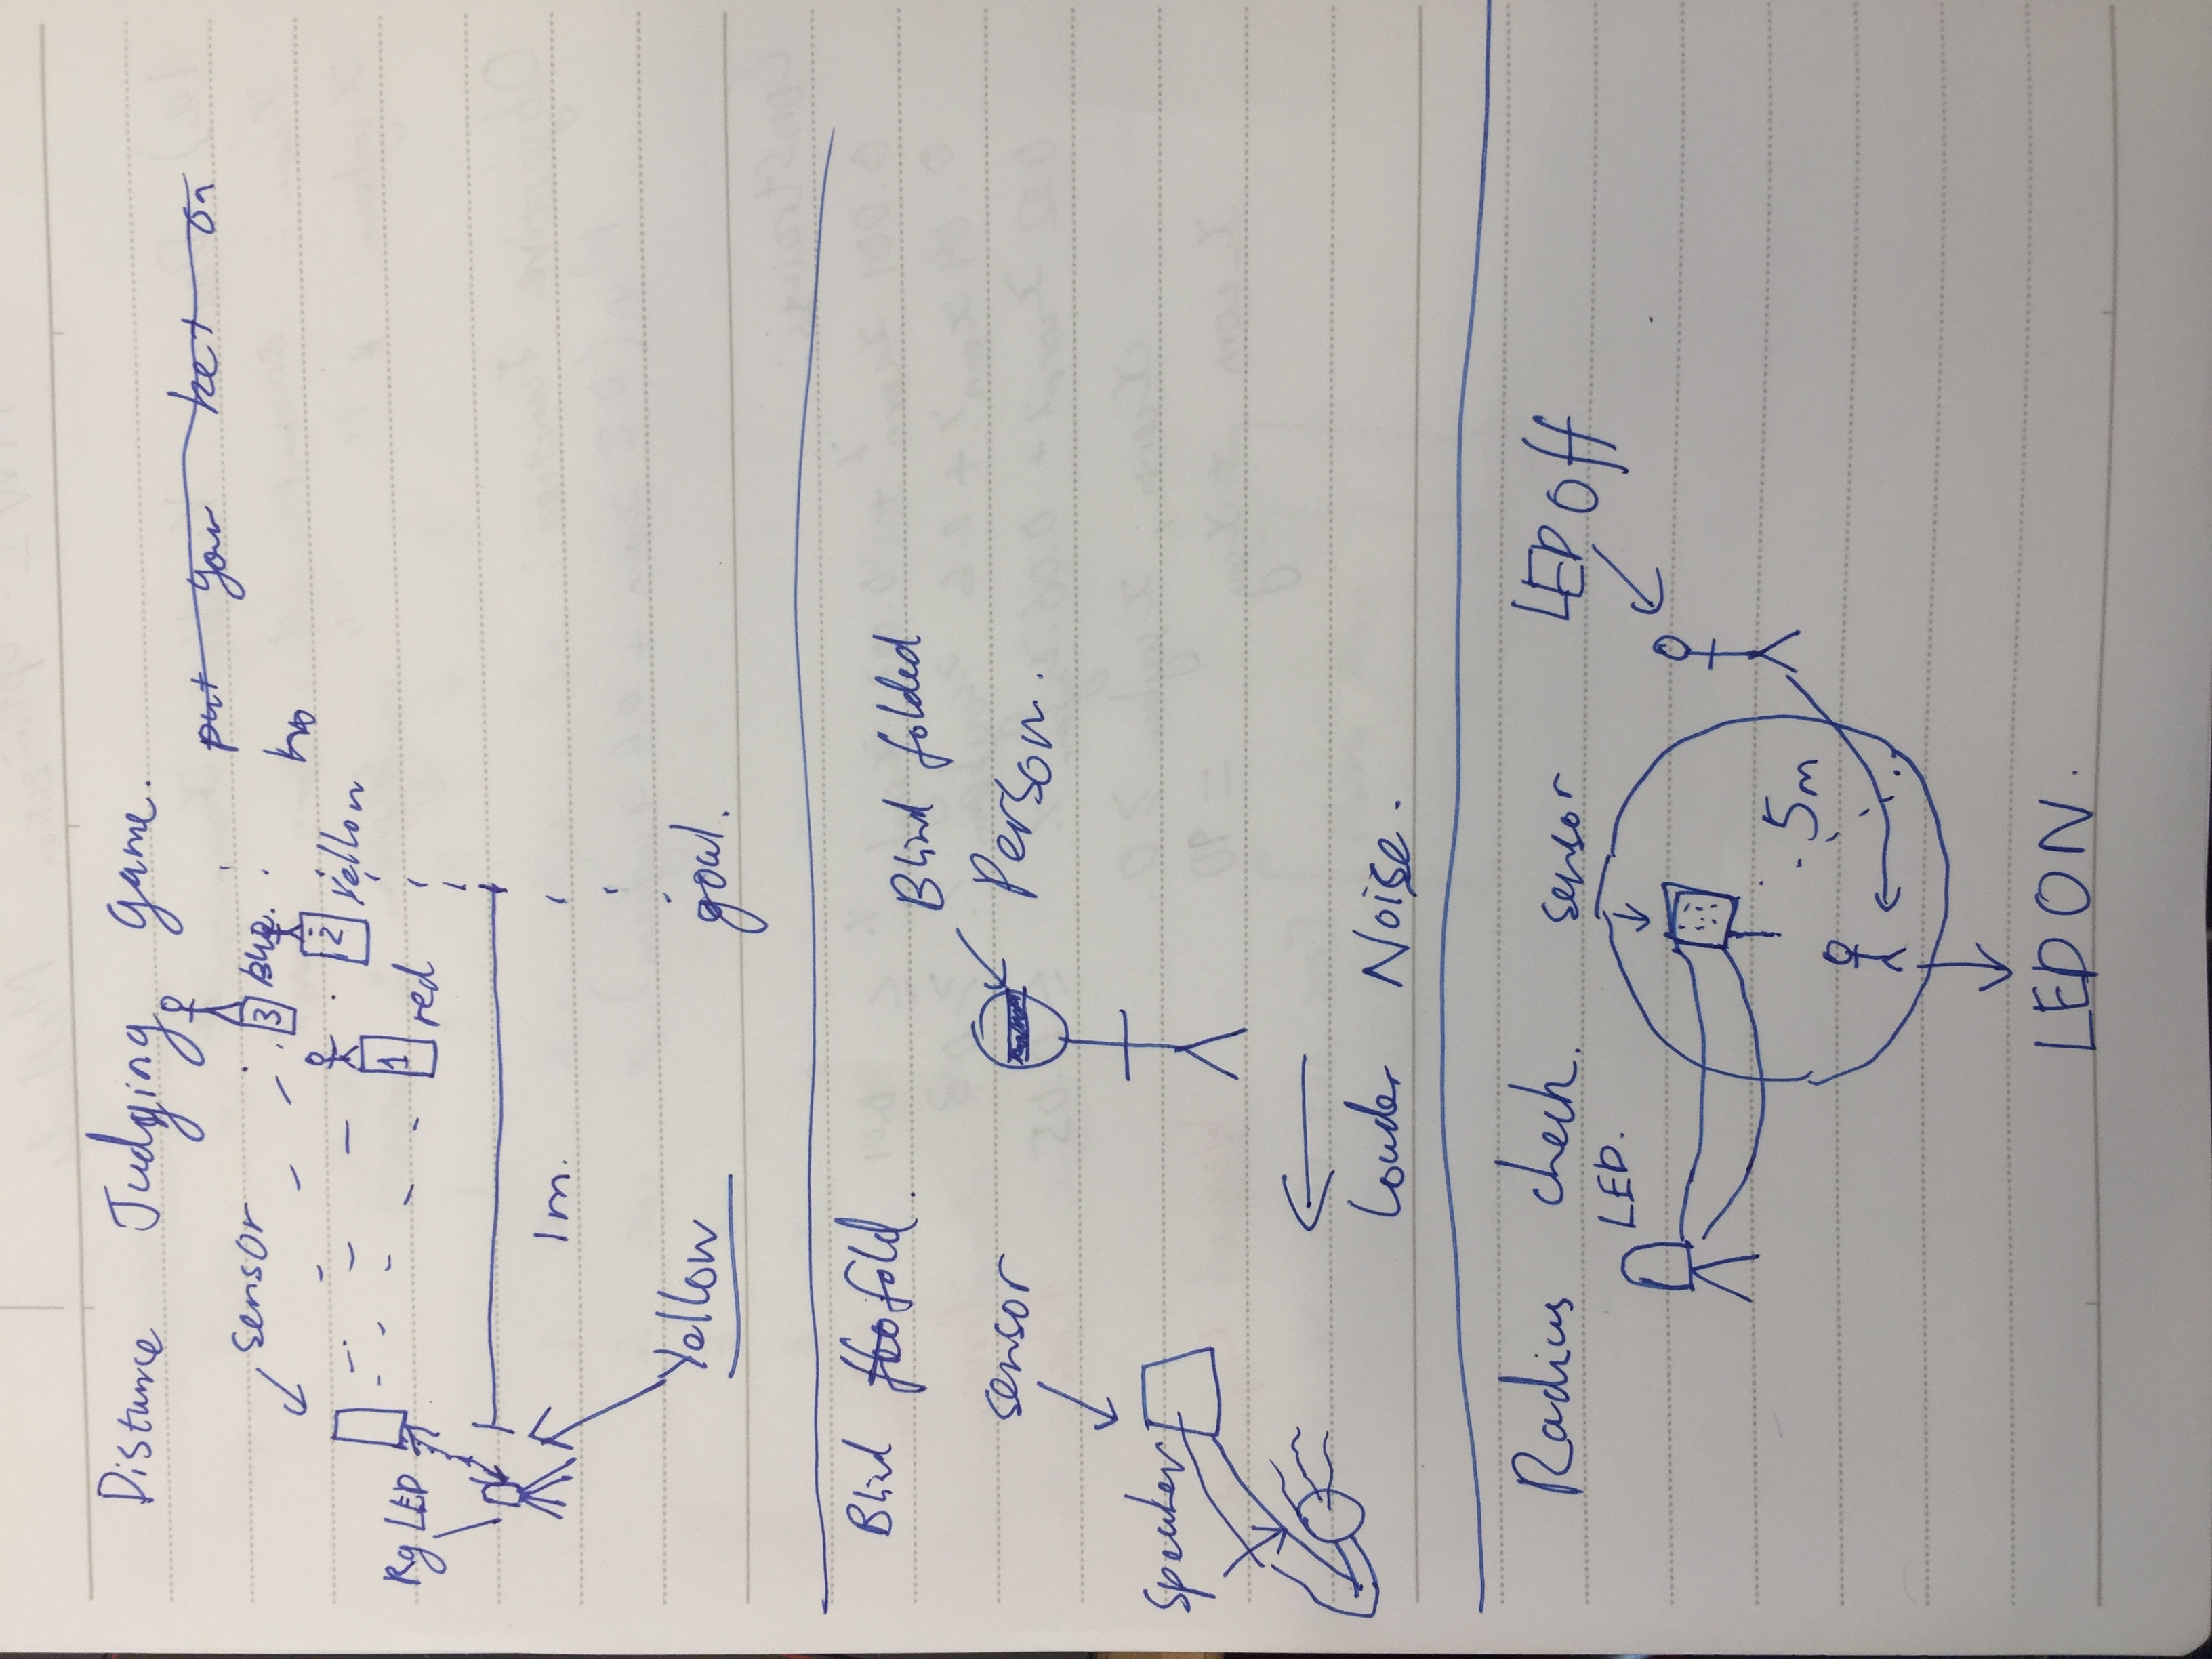 Distance Judging Game.
put your bet on
sensor
3 Blue.
2 Yellow
Rg LED
1 red
1m.
Yellow
goal.
Blind fold.
Blind folded
Person.
sensor
Speaker
Louder Noise.
Radius check.
sensor
LED Off
LED.
.5m
LED ON.